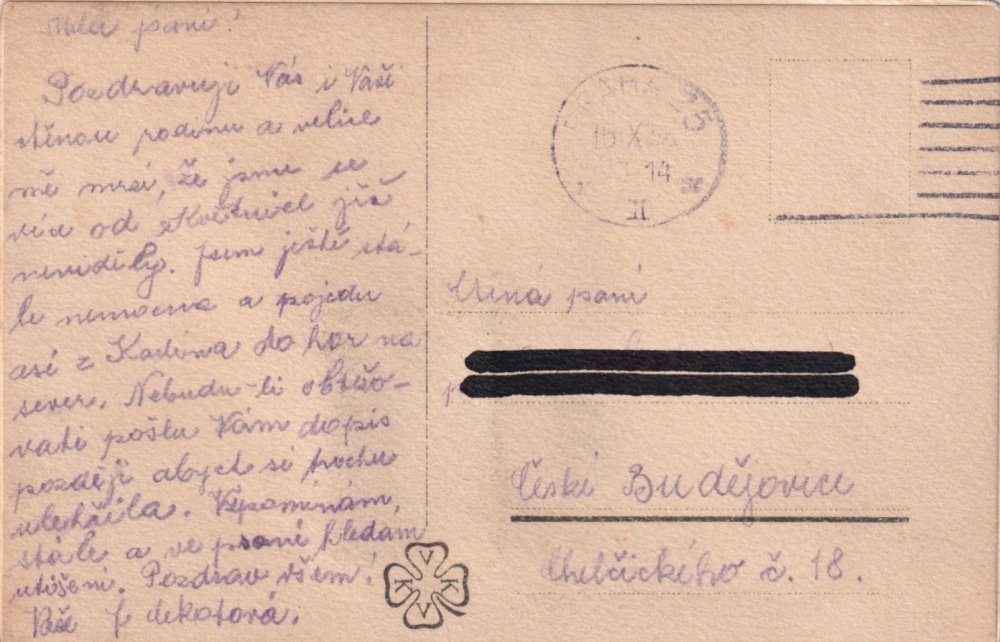 Milá paní!
Pozdravuji Vás i Vaši
ctěnou rodinu a velice
mě mrzí, že jsme se
více od Květnice již
neviděly. Jsem ještě stá-
le nemocna a pojedu
asi z Karlína do hor na
sever. Nebudu-li obtěžo-
vati pošlu Vám dopis
později abych si trochu
ulehčila. Vzpomínám,
stále a ve psaní hledam
utišení. Pozdrav všem!
Vaše
PRAHA 25
15 X
14
II
Ctěná paní
České Budějovice
Chelčického č. 18.
V K V K